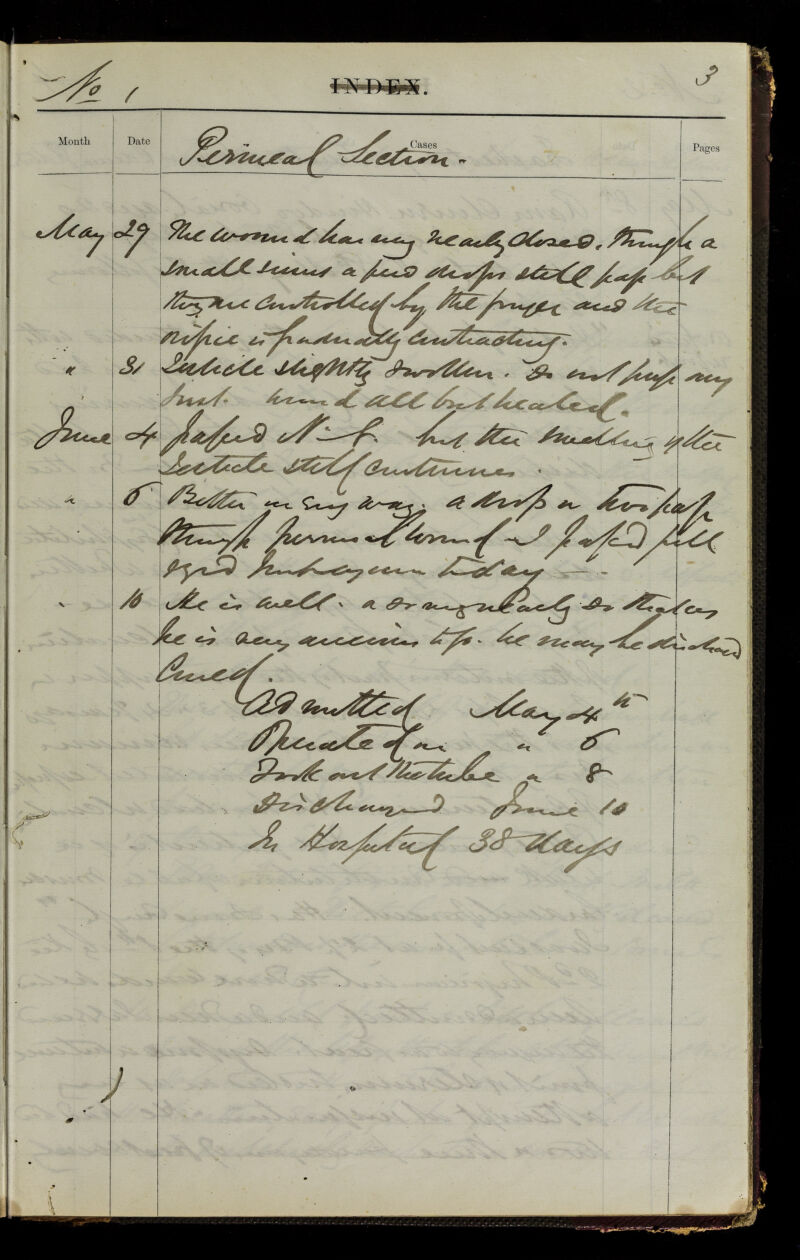 No 1 INDEX. 3
Month Date Cases Pages
Perineal Section.
May 29 The wound has very nearly closed, through a
small sinus a few drops still pass but
they are controlled by the finger and the
orifice is gradually contracting.
" 31 Testicle slightly swollen. Do not pass any
Inst. wound all but healed.
June 4 passed No 8. but the swelling of the
Testicle still continues.
" 6 Better in every way. a drop or two pass
through perineal wound I passed full
sized today
" 10 He is well. or very nearly so that as
he is very anxious to go. he may be discharged
Cured.
Admitted May 4th
Operated on " 6
Took out the tube " 8
Discharged June 10
In Hospital 38 days